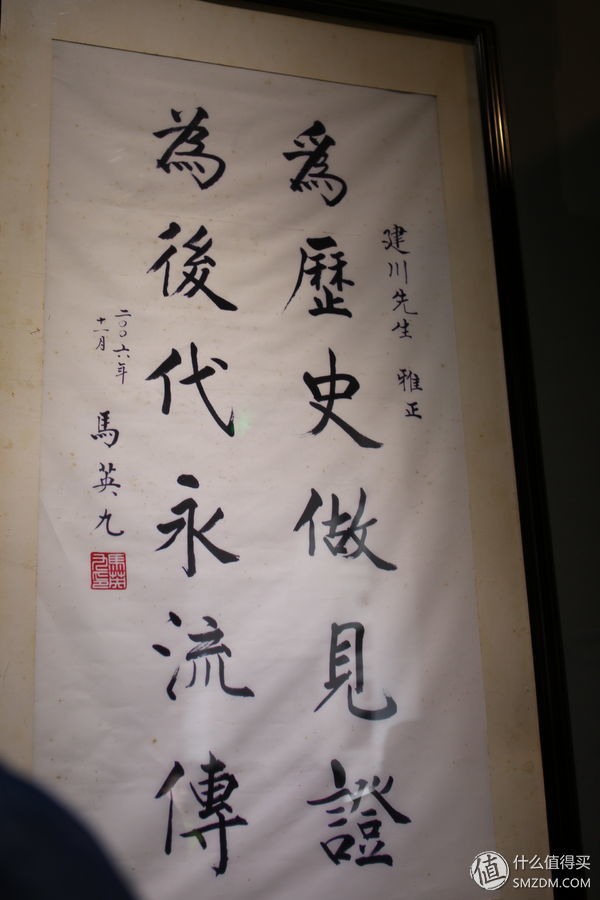 建川先生 雅正
爲歷史做見證
為後代永流傳
二〇〇六年
十一月
馬英九
什么值得买
SMZDM.COM
值